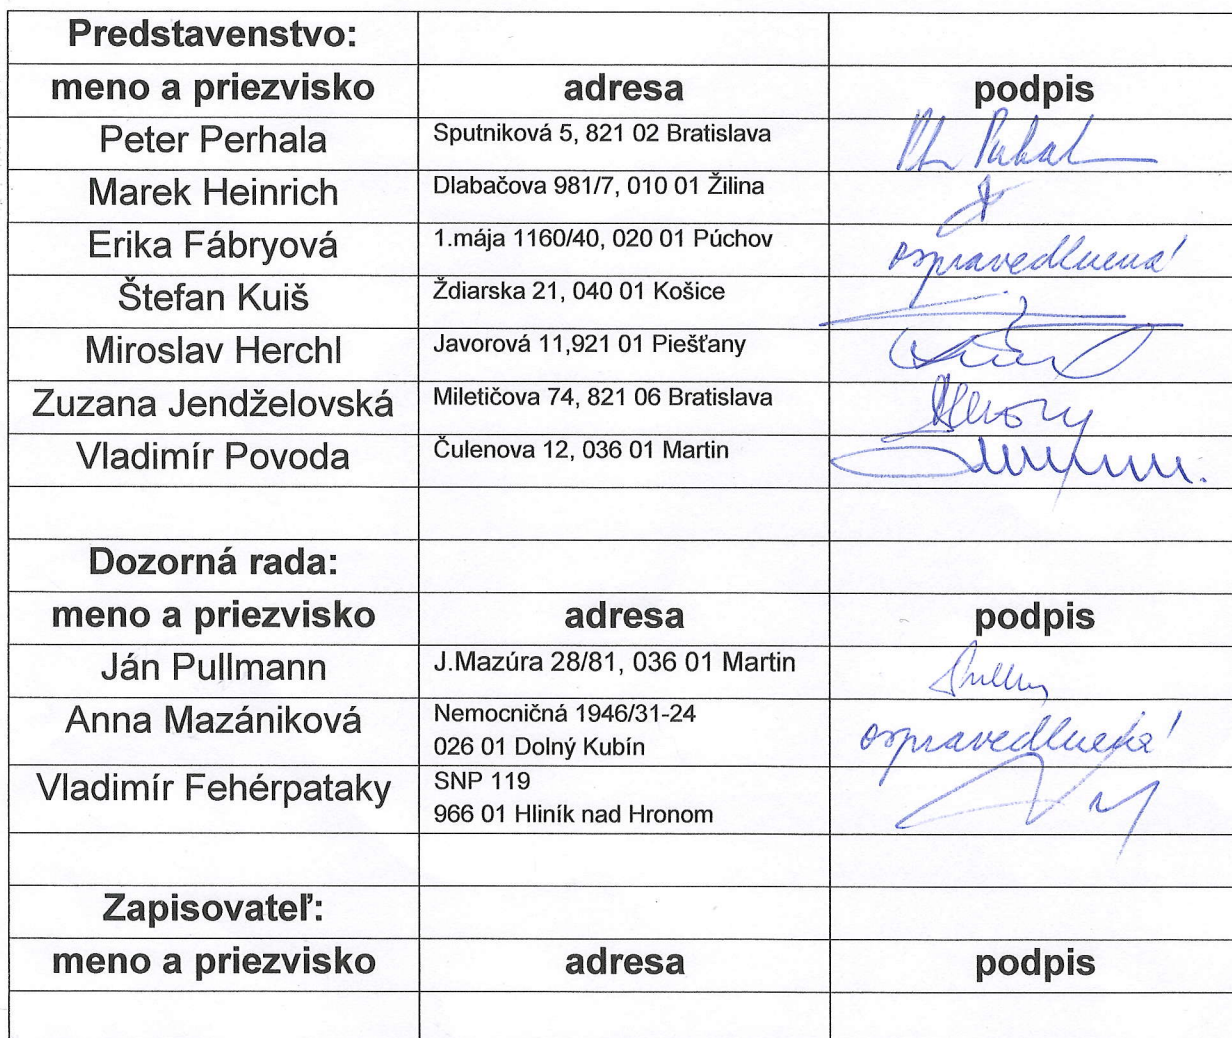 Predstavenstvo:
meno a priezvisko adresa podpis
Peter Perhala Sputniková 5, 821 02 Bratislava
Marek Heinrich Dlabačova 981/7, 010 01 Žilina
Erika Fábryová 1.mája 1160/40, 020 01 Púchov ospravedlnená
Štefan Kuiš Ždiarska 21, 040 01 Košice
Miroslav Herchl Javorová 11,921 01 Piešťany
Zuzana Jendželovská Miletičova 74, 821 06 Bratislava
Vladimír Povoda Čulenova 12, 036 01 Martin
Dozorná rada:
meno a priezvisko adresa podpis
Ján Pullmann J.Mazúra 28/81, 036 01 Martin
Anna Mazániková Nemocničná 1946/31-24
026 01 Dolný Kubín ospravedlnená
Vladimír Fehérpataky SNP 119
966 01 Hliník nad Hronom
Zapisovateľ:
meno a priezvisko adresa podpis